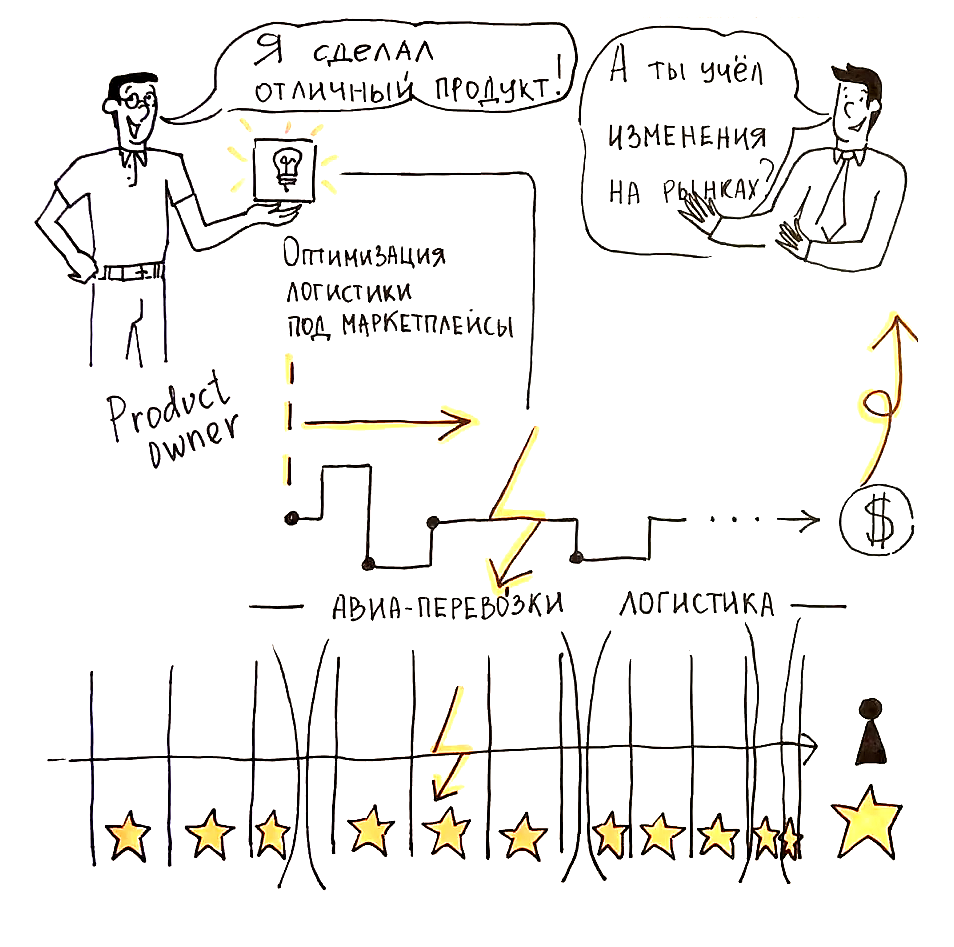 Я СДЕЛАЛ
ОТЛИЧНЫЙ ПРОДУКТ!
А ТЫ УЧЁЛ
ИЗМЕНЕНИЯ
НА РЫНКАХ?
Оптимизация
логистики
под маркетплейсы
Product
owner
$
— АВИА-ПЕРЕВОЗКИ ЛОГИСТИКА —